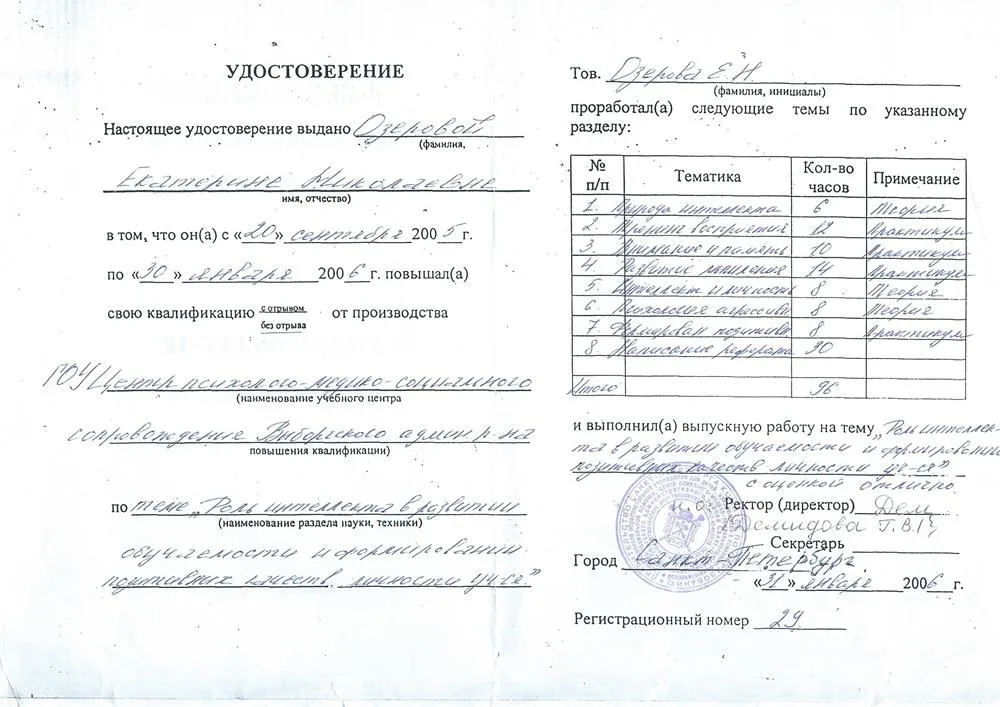 УДОСТОВЕРЕНИЕ
Настоящее удостоверение выдано Озеровой
(фамилия,
Екатерине Николаевне
имя, отчество)
в том, что он(а) с «20» сентября 2005 г.
по «30» января 2006 г. повышал(а)
свою квалификацию с отрывом
без отрыва от производства
ГОУ Центр психолого-медико-социального
(наименование учебного центра
сопровождение Выборгского админ р-на
повышения квалификации)
по теме „Роль интеллекта в развитии
(наименование раздела науки, техники)
обучаемости и формировании
позитивных качеств личности уч-ся"
Тов. Озерова Е.Н.
(фамилия, инициалы)
проработал(а) следующие темы по указанному
разделу:
№ п/п Тематика Кол-во часов Примечание
1. Природа интеллекта 6 Теория
2. Тренинг восприятия 12 Практикум
3. Внимание и память 10 Практикум
4. Развитие мышления 14 Практикум
5. Интеллект и личность 8 Теория
6. Психология агрессивн 8 Теория
7. Формирован позитивн 8 Практикум
8. Написание реферата 30
Итого 96
и выполнил(а) выпускную работу на тему „Роль интеллек-
та в развитии обучаемости и формировании
позитивных качеств личности уч-ся"
с оценкой отлично
и.о. Ректор (директор)
Демидова Т.В.
Секретарь
Город Санкт-Петербург
«31» января 2006 г.
Регистрационный номер 29